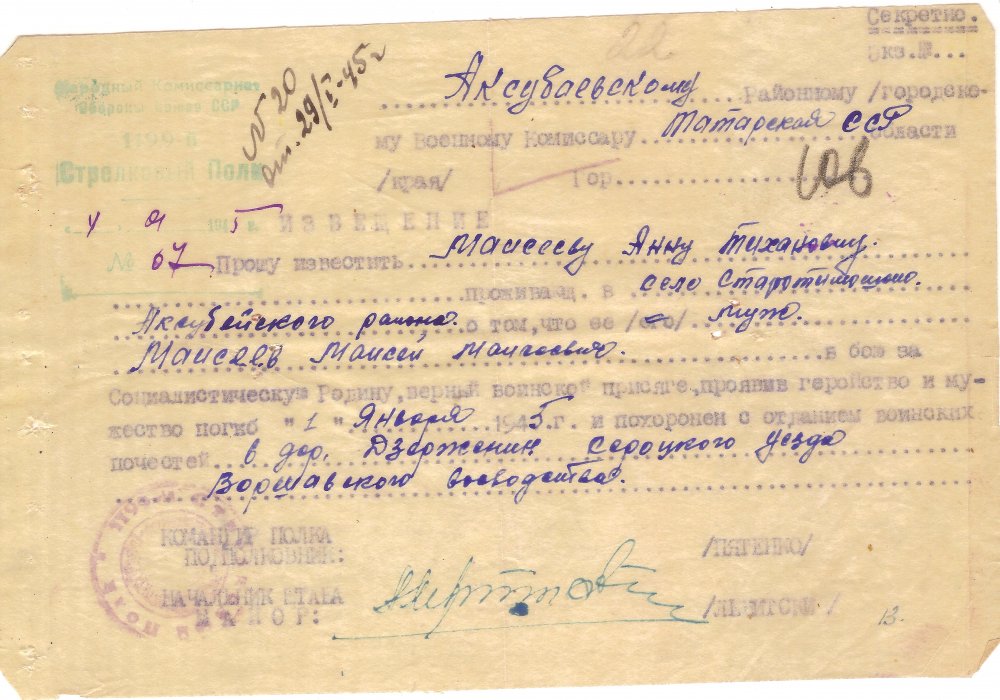 Секретно.
Экз.№...
22
Народный Комиссариат
Обороны Союза ССР
1199-й
Стрелковый Полк
4 01 1945 г.
№ 67
№ 20
от. 29/I-45 г
Аксубаевскому Районному /городско-
му Военному Комиссару Татарской ССР области
/края/ Гор.
ИЗВЕЩЕНИЕ
Прошу известить Маисееву Анну Тихановну.
проживающ. в село Старотимошкино.
Аксубейского района. о том, что ее /его/ муж
Маисеев Маисей Маисеевич в бою за
Социалистическую Родину, верный воинской присяге, проявив геройство и му-
жество погиб "1" Января 1945.г. и похоронен с отданием воинских
почестей в дер. Дзержении Сероцкого уезда
Воршавского воеводства.
КОМАНДИР ПОЛКА
ПОДПОЛКОВНИК: /ПЯТЕНКО/
НАЧАЛЬНИК ШТАБА
МАЙОР: /ЛЕВИТСКИ /
13.